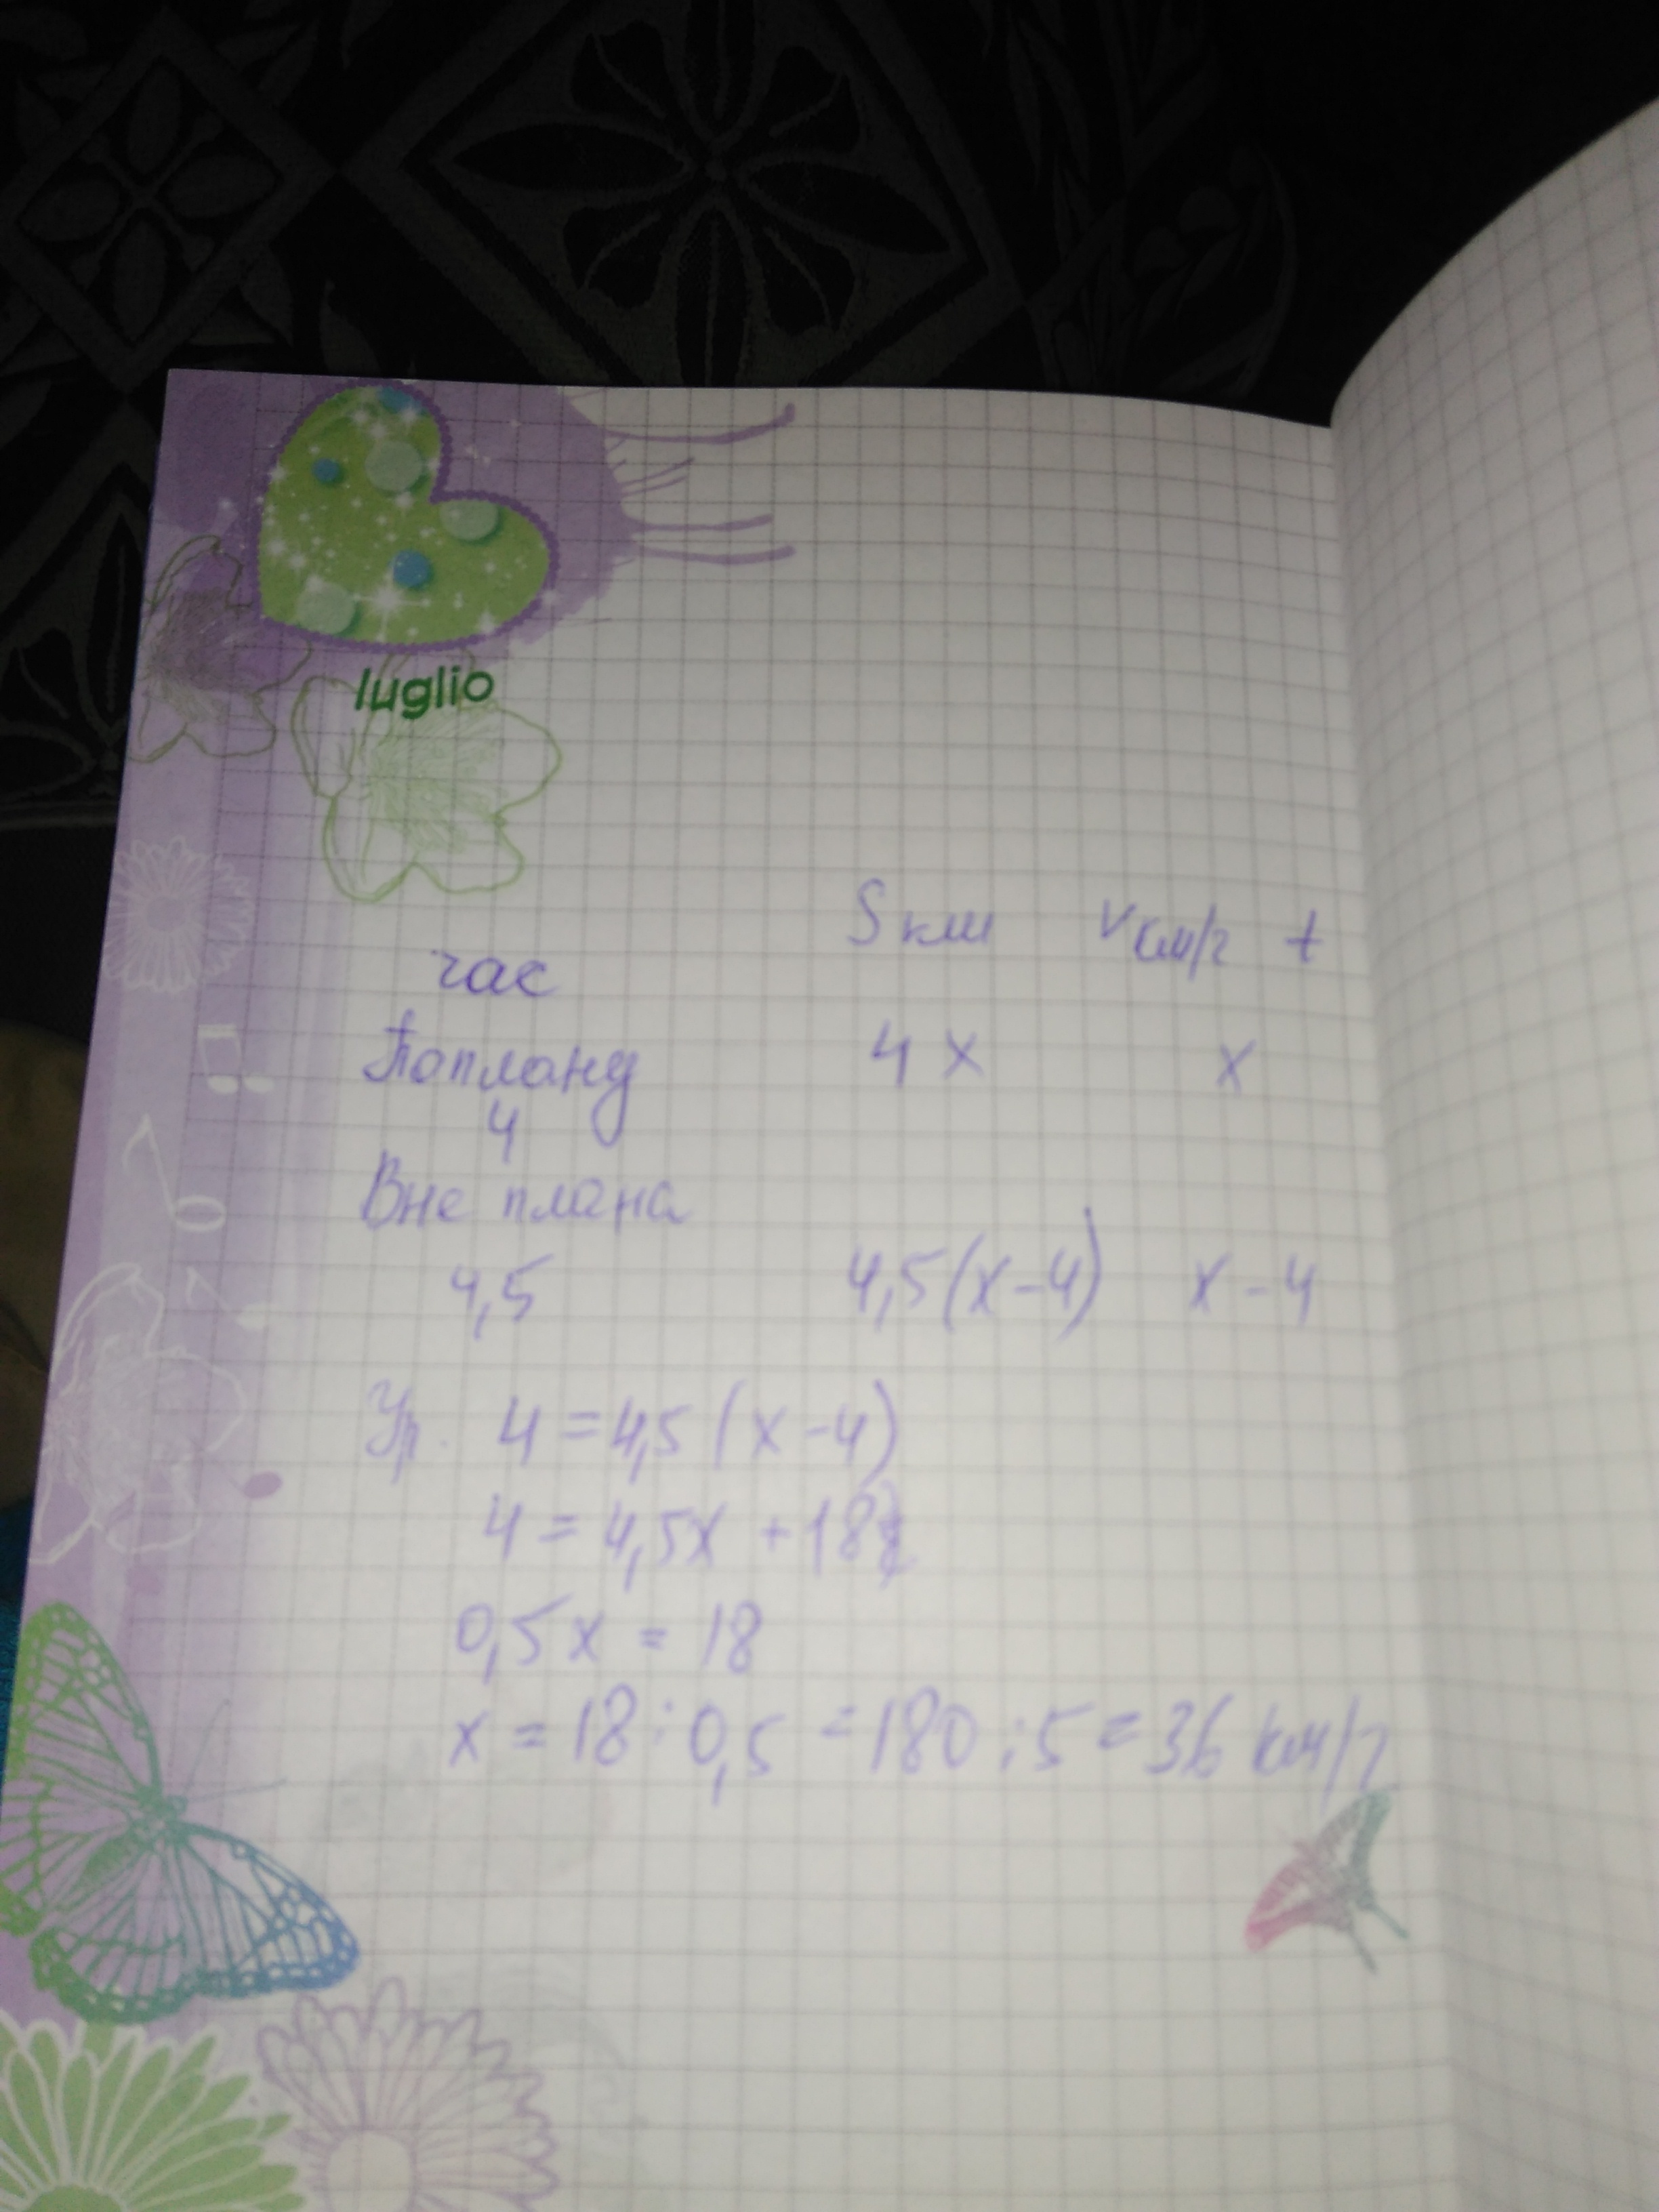 luglio
S км v км/г t
час
По плану 4 x x
4
Вне плана
4,5 4,5(x-4) x-4
Ур. 4=4,5(x-4)
4=4,5x +18
0,5x = 18
x = 18:0,5 = 180:5 = 36 км/г